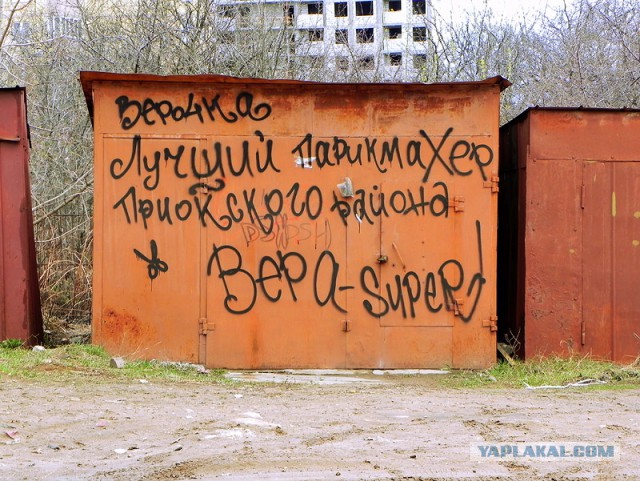 Верочка
Лучший ПарикмаХер
Приокского района
Вера-super!
YAPLAKAL.COM